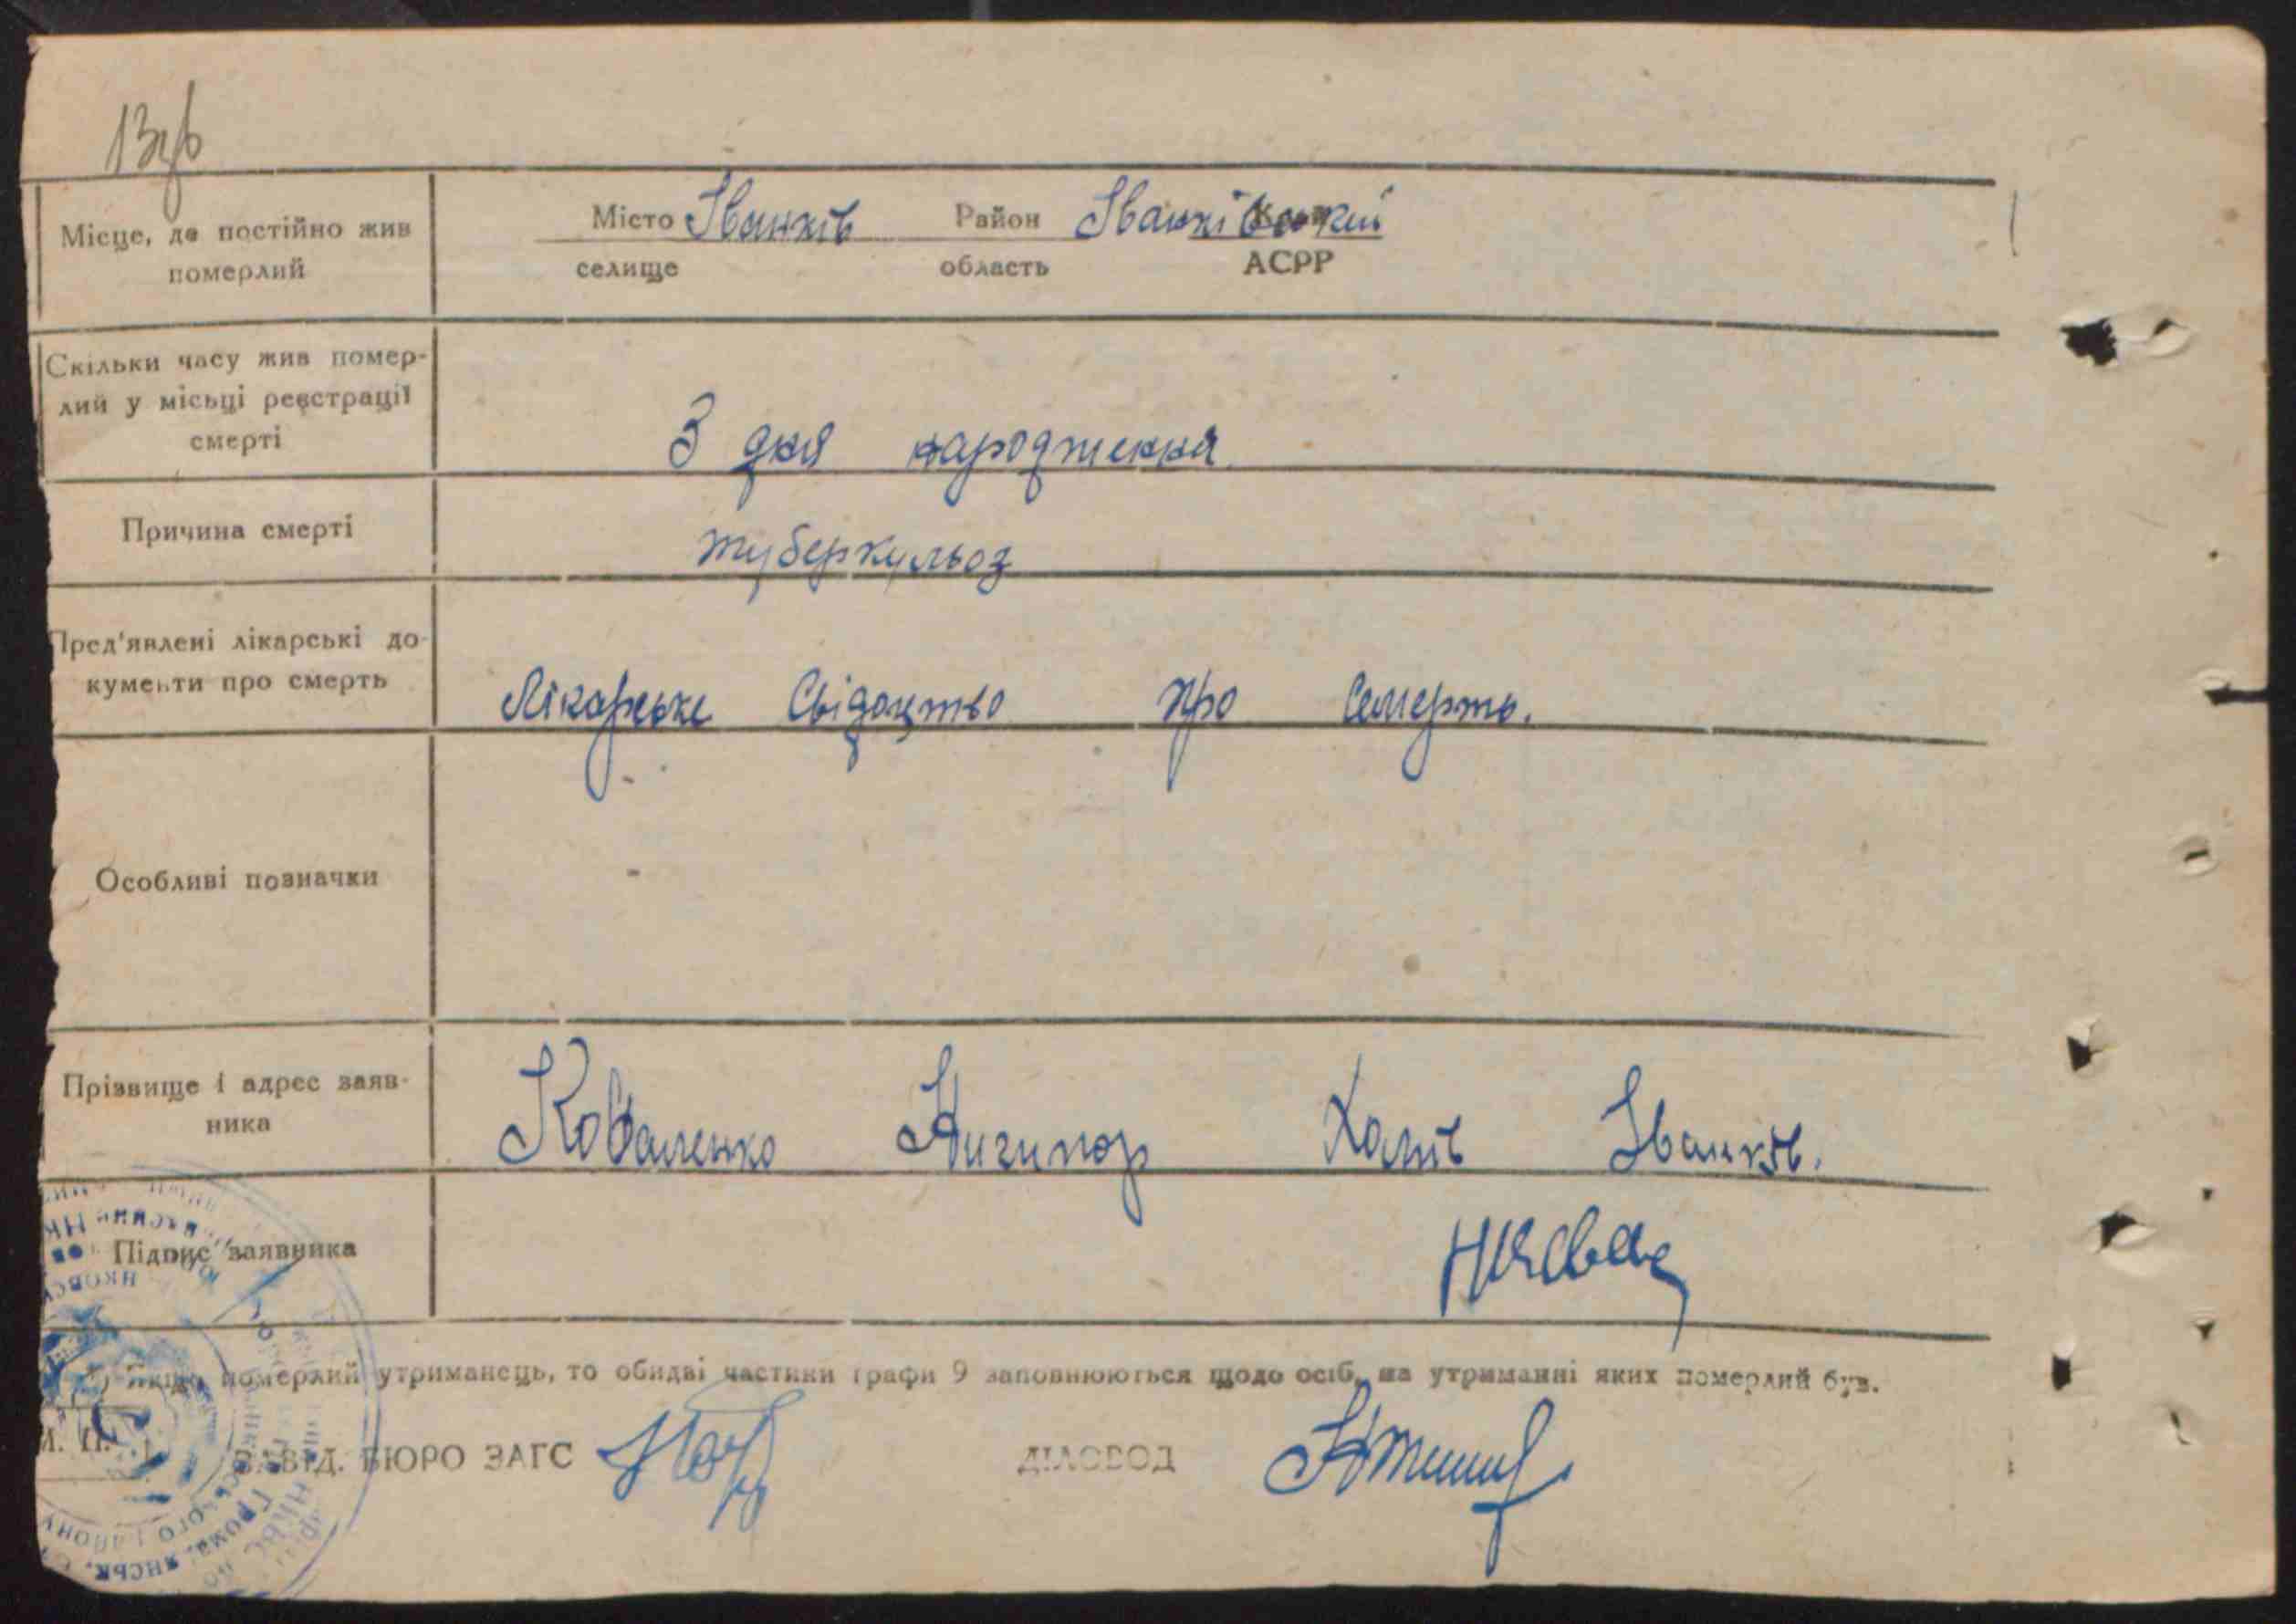 Місце, де постійно жив
померлий
Місто Іванків Район Іванківський
селище область АСРР
Скільки часу жив помер-
лий у місьці реєстрації
смерті
З дня народження
Причина смерті
туберкульоз
Пред'явлені лікарські до-
кументи про смерть
Лікарське Свідоцтво про Смерть.
Особливі позначки
Прізвище і адрес заяв-
ника
Коваленко Ничипор Іванків.
Підпис заявника
померлий утриманець, то обидві частини графи 9 заповнюються щодо осіб, на утриманні яких померлий був.
М. П.
ЗАВІД. БЮРО ЗАГС ДІЛОВОД